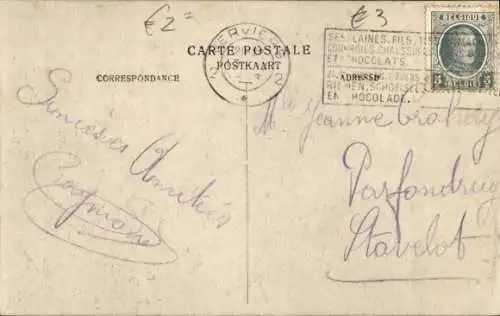 €2=
€3
CARTE POSTALE
POSTKAART
CORRESPONDANCE
ADRESSE
VERVIERS
2
SES LAINES, FILS,
COURROIES, CHAUSSURES
ET CHOCOLATS.
RIEMEN, SCHOEISELS
EN CHOCOLADE.
BELGIQUE
5 5
BELGIË
Sincères Amitiés
Raymond
Mlle Jeanne
Parfondruy
Stavelot